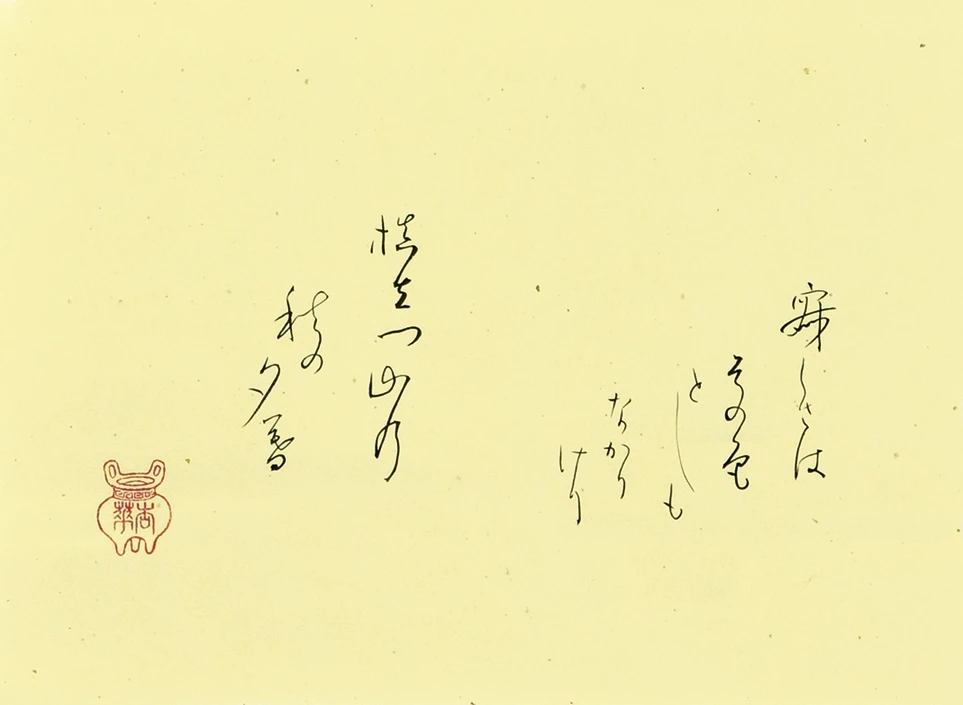 寂しさは
その色
としも
なかり
けり
槙立つ山乃
秋の
夕暮
杏華